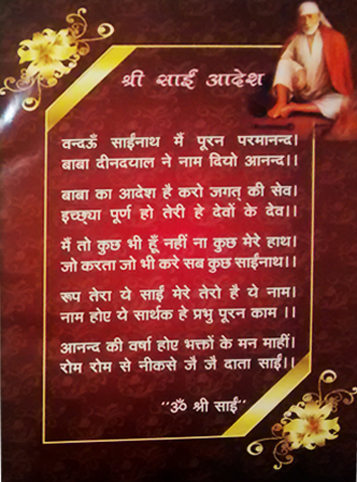 श्री साईं आदेश
वन्दऊँ साईंनाथ मैं पूरन परमानन्द।
बाबा दीनदयाल ने नाम दियो आनन्द।।
बाबा का आदेश है करो जगत् की सेव।
इच्छ्या पूर्ण हो तेरी हे देवों के देव।।
मैं तो कुछ भी हूँ नहीं ना कुछ मेरे हाथ।
जो करता जो भी करे सब कुछ साईंनाथ।।
रूप तेरा ये साईं मेरे तेरो है ये नाम।
नाम होए ये सार्थक हे प्रभु पूरन काम ।।
आनन्द की वर्षा होए भक्तों के मन माहीं।
रोम रोम से नीकसे जै जै दाता साईं।।
"ॐ श्री साईं"